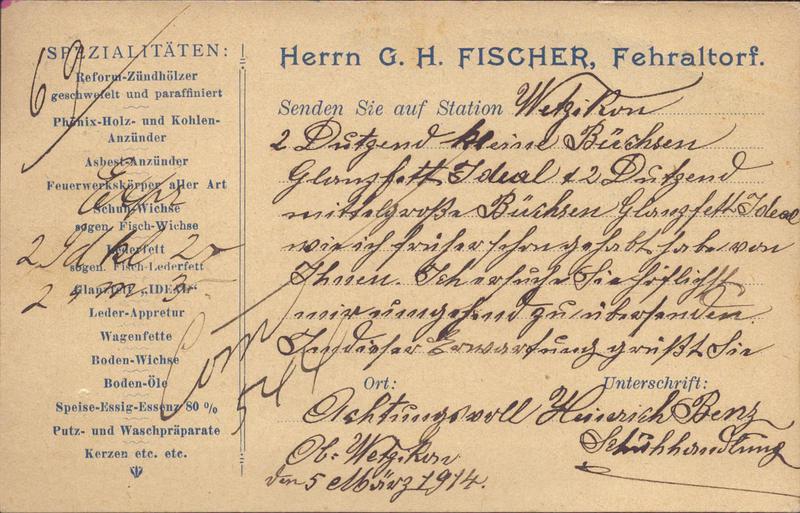 SPEZIALITÄTEN:
Reform-Zündhölzer
geschwefelt und paraffiniert
Phönix-Holz- und Kohlen-
Anzünder
Asbest-Anzünder
Feuerwerkskörper aller Art
Schuh-Wichse
sogen. Fisch-Wichse
Lederfett
sogen. Fisch-Lederfett
Glanzfett „IDEAL“
Leder-Appretur
Wagenfette
Boden-Wichse
Boden-Öle
Speise-Essig-Essenz 80 %
Putz- und Waschpräparate
Kerzen etc. etc.
Herrn G. H. FISCHER, Fehraltorf.
Senden Sie auf Station Wetzikon
2 Dutzend kleine Büchsen
Glanzfett Ideal & 2 Dutzend
mittelgroße Büchsen Glanzfett Ideal
wie ich früher schon gehabt habe von
Ihnen. Ich ersuche Sie höflichst
mir umgehend zu übersenden.
In dieser Erwartung grüßt Sie
Ort: Unterschrift:
Achtungsvoll Heinrich Benz
Schuhhandlung
Ob: Wetzikon
den 5 März 1914.